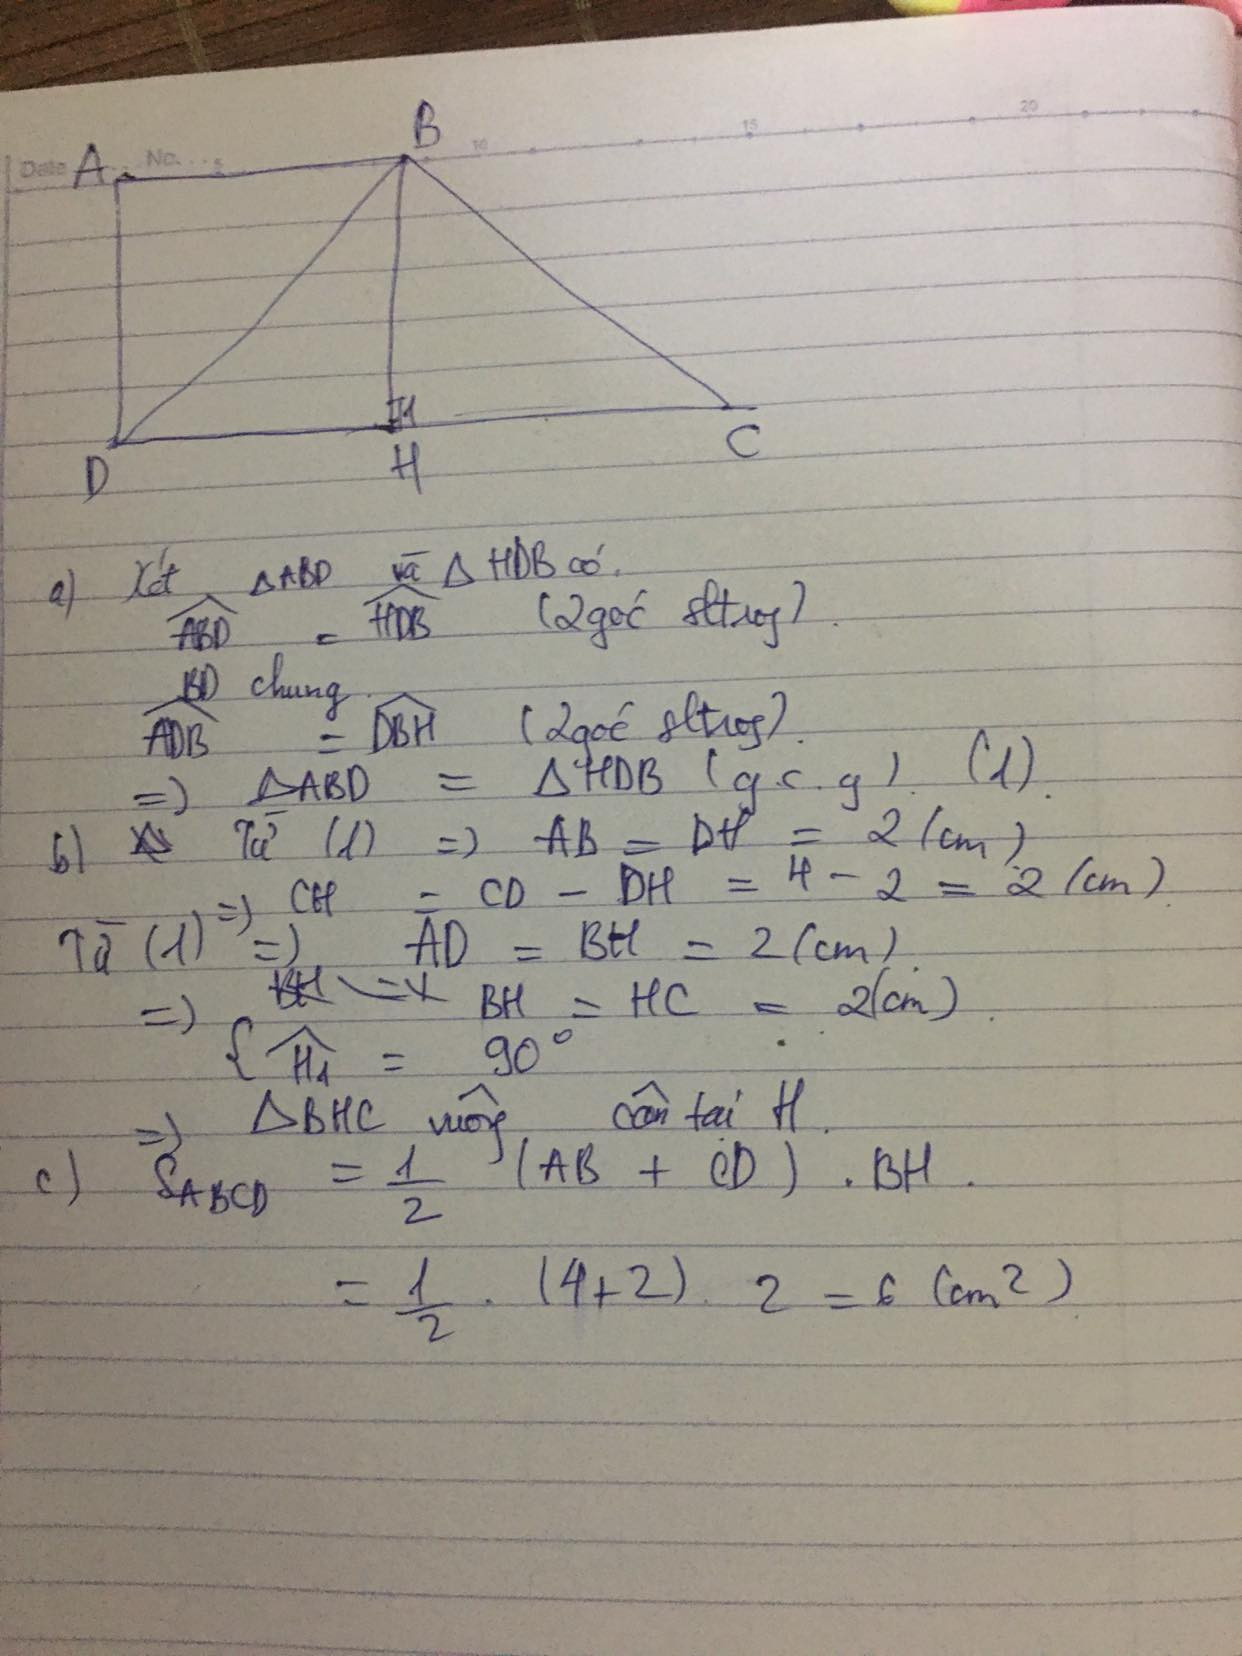 B
Date No. 5 10 15 20
A
D H C
a) Xét ΔABD và ΔHDB có.
ABD = HDB (2 góc sltrog).
BD chung.
ADB = DBH (2 góc sltrog).
=) ΔABD = ΔHDB (g.c.g). (1).
b) Từ (1) =) AB = DH = 2 (cm)
=) CH = CD - DH = 4 - 2 = 2 (cm)
Từ (1) =) AD = BH = 2 (cm).
=) BH = HC = 2 (cm).
{ H1 = 90°
=) ΔBHC vuông cân tại H.
c) SABCD = 1/2 (AB + CD) . BH.
= 1/2 . (4+2) . 2 = 6 (cm²)